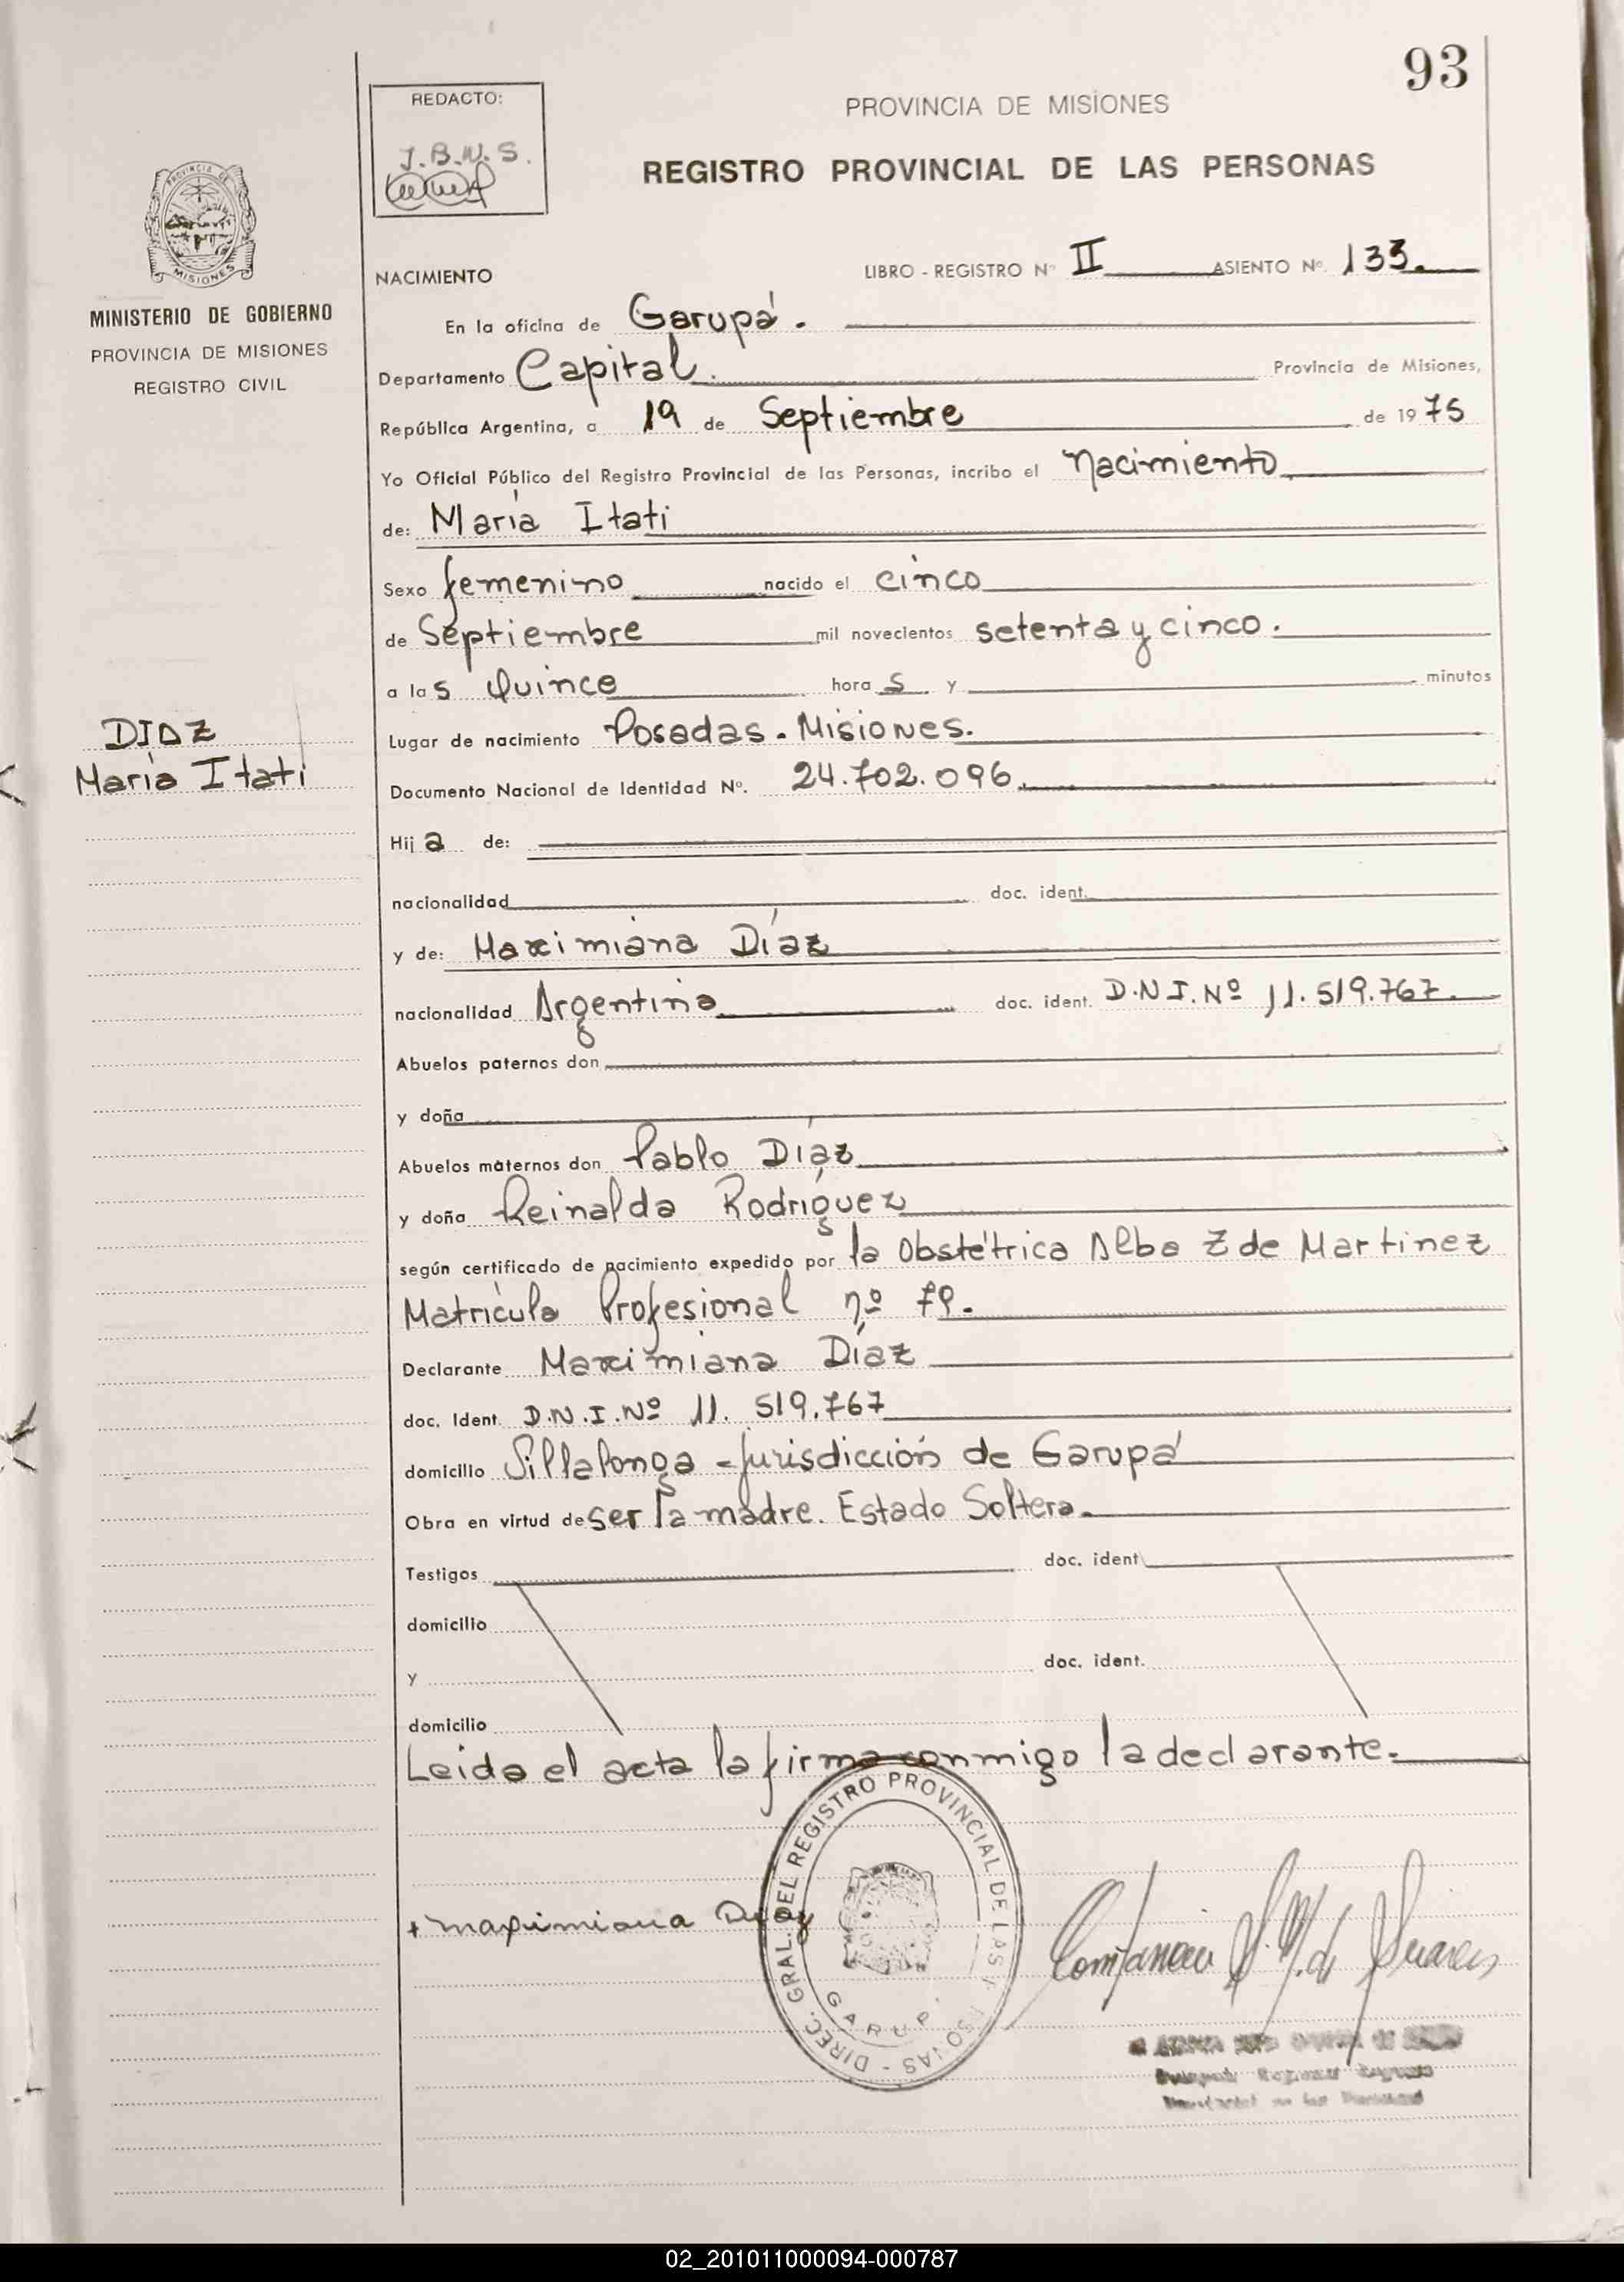 93
REDACTO:
J.B.W.S.
PROVINCIA DE MISIONES
REGISTRO PROVINCIAL DE LAS PERSONAS
PROVINCIA DE
MISIONES
MINISTERIO DE GOBIERNO
PROVINCIA DE MISIONES
REGISTRO CIVIL
NACIMIENTO
LIBRO - REGISTRO Nº II ASIENTO Nº 133.
En la oficina de Garupá.
Departamento Capital. Provincia de Misiones,
República Argentina, a 19 de Septiembre de 1975
Yo Oficial Público del Registro Provincial de las Personas, incribo el Nacimiento
de: María Itati
Sexo femenino nacido el cinco
de Septiembre mil novecientos setenta y cinco.
a las Quince horas y minutos
DIAZ
María Itati
Lugar de nacimiento Posadas. Misiones.
Documento Nacional de Identidad Nº. 24.702.096.
Hija de:
nacionalidad doc. ident.
y de: Maximiana Díaz
nacionalidad Argentina doc. ident. D.N.I. Nº 11.519.767.
Abuelos paternos don
y doña
Abuelos maternos don Pablo Díaz
y doña Reinalda Rodríguez
según certificado de nacimiento expedido por la Obstétrica Alba Z de Martinez
Matrícula Profesional nº 79.
Declarante Maximiana Díaz
doc. Ident. D.N.I. Nº 11.519.767
domicilio Sillalonga - Jurisdicción de Garupá
Obra en virtud de ser la madre. Estado Soltera.
Testigos doc. ident
domicilio
y doc. ident.
domicilio
Leida el acta la firma conmigo la declarante.
DIREC. GRAL. DEL REGISTRO PROVINCIAL DE LAS
+ maximiana Diaz
02_201011000094-000787